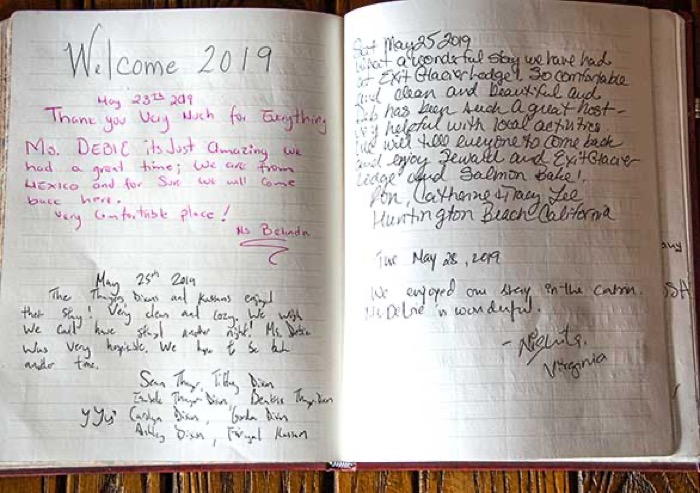 Welcome 2019
May 23TH 2019
Thank you Very Much for Everything
Ms. DEBIE its Just Amazing we
had a great time; We are from
MEXICO and for Sure we will come
back here.
Very Comfortable place!
Ms Belinda
May 25th 2019
The Thayers, Dixons and Kassams enjoyed
their stay! Very clean and cozy. We wish
We could have stayed another night! Ms. Debie
was very hospitable. We hope to be back
another time.
Sean Thayer, Tibby Dixon
Isabelle Thayer Dixon
Carolyn Dixon, Gordon Dixon
Ashley Dixon, Kassam
Sat May 25 2019
What a wonderful stay we have had
at Exit Glacier Lodge! So comfortable
and clean and beautiful and
Deb has been such a great host-
very helpful with local activities.
We will tell everyone to come back
and enjoy Seward and Exit Glacier
Lodge and Salmon bake!
Ron, Catherine & Tracy Lee
Huntington Beach California
Tue May 28, 2019
We enjoyed our stay in the cabin.
Ms Debie is wonderful.
Virginia